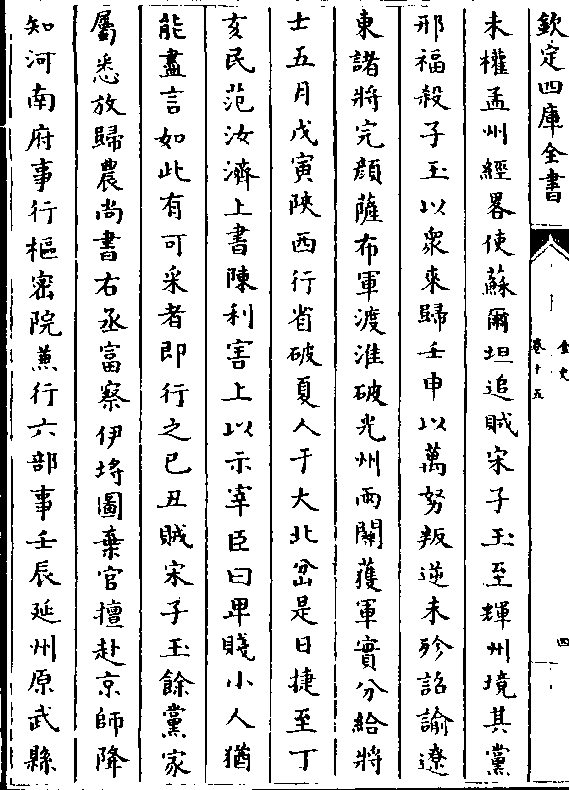 欽定四庫全書
金史
卷十五
四
未權孟州經畧使蘇爾坦追賊宋子玉至輝州境其黨
邢福殺子玉以衆來歸壬申以萬努叛逆未殄詔諭遼
東諸將完顔薩布軍渡淮破光州兩關獲軍實分給將
士五月戊寅陝西行省破夏人于大北岔是日捷至丁
亥民范汝濟上書陳利害上以示宰臣曰卑賤小人猶
能盡言如此有可采者即行之已丑賊宋子玉餘黨家
屬悉放歸農尚書右丞富察伊埒圖棄官擅赴京師降
知河南府事行樞密院兼行六部事壬辰延州原武縣